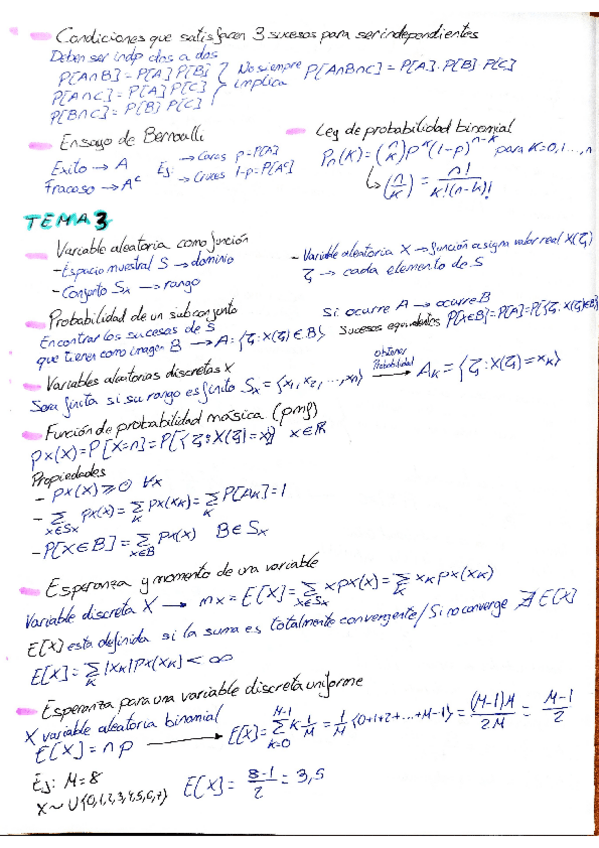 Condiciones que satisfacen 3 sucesos para ser independientes
Deben ser indp dos a dos
P[A∩B] = P[A] P[B]
P[A∩C] = P[A] P[C]
P[B∩C] = P[B] P[C]
No siempre implica P[A∩B∩C] = P[A]. P[B] P[C]
Ensayo de Bernoulli
Exito → A
Fracaso → A^c
Ej: → Caras p=P[A]
→ Cruces 1-p=P[A^c]
Ley de probabilidad binomial
Pn(K) = (n K) p^K (1-p)^{n-K} para K=0,1...,n
↳ (n K) = n! / K!(n-K)!
TEMA 3
Variable aleatoria como función
-Espacio muestral S → dominio
-Conjunto Sx → rango
-Variable aleatoria X → función asigna valor real X(ζ)
ζ → cada elemento de S
Probabilidad de un subconjunto
Encontrar los sucesos de S
que tienen como imagen B → A: {ζ: X(ζ) ∈ B}
Si ocurre A → ocurre B
Sucesos equivalentes P[X∈B]=P[A]=P[{ζ: X(ζ)∈B}
Variables aleatorias discretas X
Sera finita si su rango es finito Sx = {x1, x2, ..., xn} obtener Probabilidad → AK = {ζ: X(ζ) = xK}
Función de probabilidad másica (pmf)
px(x)=P[X=n]=P[{ζ: X(ζ)=x}] x∈R
Propiedades
- px(x) ⩾ 0 ∀x
- Σ_{x∈Sx} px(x) = Σ_K px(xK) = Σ_K P[AK] = 1
- P[X∈B] = Σ_{x∈B} px(x) B∈Sx
Esperanza y momento de una variable
Variable discreta X → mx = E[X] = Σ_{x∈Sx} x px(x) = Σ_K xK px(xK)
E[X] esta definida si la suma es totalmente convergente / Si no converge ∄ E[X]
E[X] = Σ_K |xK| px(xK) < ∞
Esperanza para una variable discreta uniforme
X variable aleatoria binomial
E[X] = n p → E[X] = Σ_{K=0}^{M-1} K 1/M = 1/M {0+1+2+...+M-1} = (M-1)M / 2M = M-1 / 2
Ej: M=8
X ~ U{0,1,2,3,4,5,6,7}
E[X] = 8-1 / 2 = 3,5